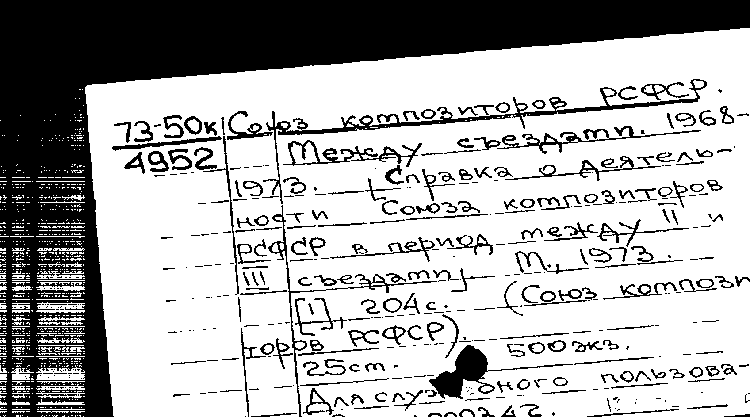 73-50к Союз композиторов РСФСР.
4952 Между съездами. 1968-
1973. [Справка о деятель-
ности Союза композиторов
РСФСР в период между II и
III съездами]. М., 1973.
[1], 204 с. (Союз компози
торов РСФСР).
25 см. 500 экз.
Для служебного пользова-